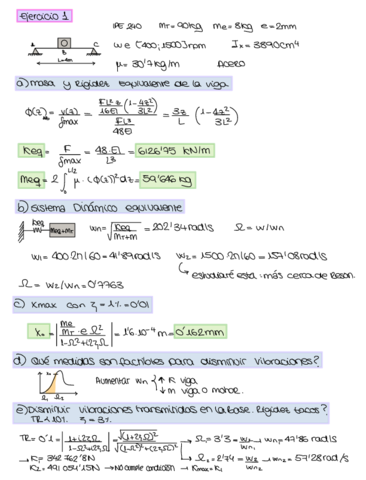 Ejercicio 1
IPE 240 Mr = 90kg me = 8kg e = 2mm
A B C
L=4m
w ∈ (400, 1500) rpm Ix = 3890cm⁴
μ = 30'7kg/m ACERO
a) masa y Rigidez equivalente de la viga.
ϕ(z) = v(z)/fmax = (FL²z/16EI (1 - 4z²/3L²)) / (FL³/48EI) = 3z/L (1 - 4z²/3L²)
Keq = F/fmax = 48·EI/L³ = 6126'75 KN/m
Meq = 2 ∫₀^(L/2) μ·(ϕ(z))² dz = 59'646 kg
b) Sistema Dinámico equivalente
Keq
Meq+Mr
wn = √(Keq/(Mr+m)) = 202'34 rad/s Ω = w/wn
w₁ = 400·2π/60 = 41'89 rad/s w₂ = 1500·2π/60 = 157'08 rad/s
estudiaré esta: más cerca de Reson.
Ω = w₂/wn = 0'7763
c) Xmax con ξ = 1% = 0'01
X₀ = | (me/Mr · e · Ω²) / (1-Ω²+i2ξΩ) | = 1'6·10⁻⁴ m = 0'162mm
d) Qué medidas son factibles para disminuir vibraciones?
Aumentar wn ↑ K viga.
↓ m viga o motor.
Ω₁ Ω₂
e) Disminuir vibraciones transmitidas en la base. Rigidez tacos?
TR < 10% ξ = 3%
TR = 0'1 = | (1+i2ξΩ) / (1-Ω²+i2ξΩ) | = √(1+(2ξΩ)²) / √((1-Ω²)²+(2ξΩ)²) → Ω₁ = 3'3 = w₂/wn₁ → wn₁ = 47'86 rad/s
→ Ω₂ = 2'74 = w₂/wn₂ → wn₂ = 57'28 rad/s
→ K₁ = 342762'8N
K₂ = 491054'15N → No cumple condición → Kmax = K₁